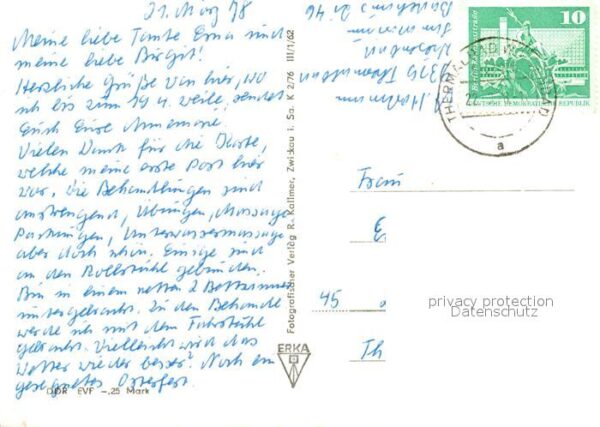 21. März 78
Meine liebe Tante Erna und
meine liebe Birgit!
Herzliche Grüße von hier, wo
ich bis zum 19.4. weile, sendet
Euch Eure Annemarie.
Vielen Dank für die Karte,
welche meine erste Post hier
war. Die Behandlungen sind
anstrengend, Übungen, Massage
Packungen, Unterwassermassage
aber doch schön. Einige sind
an den Rollstuhl gebunden.
Bin in einem netten 2 Bettzimmer
untergebracht. Zu den Behandl
werde ich mit dem Fahrstuhl
gebracht. Vielleicht wird das
Wetter wieder besser? Noch ein
gesegnetes Osterfest.
DDR EVP -,25 Mark
Fotografischer Verlag R. Kallmer, Zwickau i. Sa. K 2/76 III/1/62
ERKA
10
DEUTSCHE DEMOKRATISCHE REPUBLIK
THERMALBAD
a
Frau
E
45
Th
privacy protection
Datenschutz